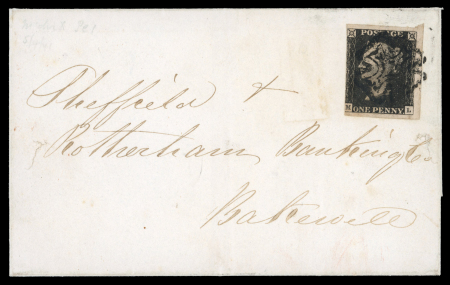 POSTAGE
ONE PENNY
Sheffield &
Rotherham Banking Co
Bakewell